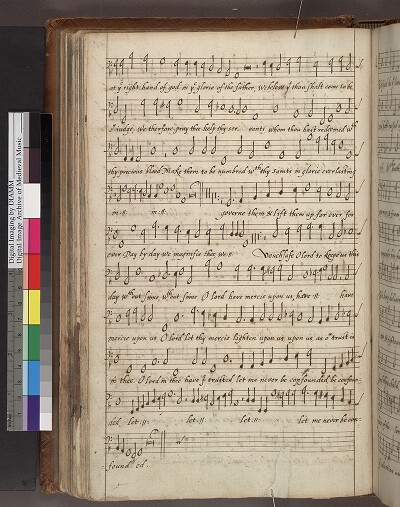 at yͤ right hand of god in yͤ glorie of the father, We beleve yͭ thou shalt come to be
o{u} Judge, We therfore pray thee help thy ser- vants whom thou hast redeemed wͭʰ
thy precious blood Make them to be numbred wͭʰ thy saints in glorie everlasting
in :||: in :||: governe them & lift them up for ever for
ever Day by day we magnifie thee we :||: Vouchsafe O lord to keepe us this
day wͭʰout sinne, wͭʰout sinne, O lord have mercie upon us, have :||: have
mercie upon us, O lord let thy mercie lighten upon us, upon us as oͬ trust is
in thee, O lord in thee have I trusted let me never be confounded, be confoun-
ded let :||: let :||: let :||: let me never be con-
founded.
Digital Imaging by DIAMM
Digital Image Archive of Medieval Music